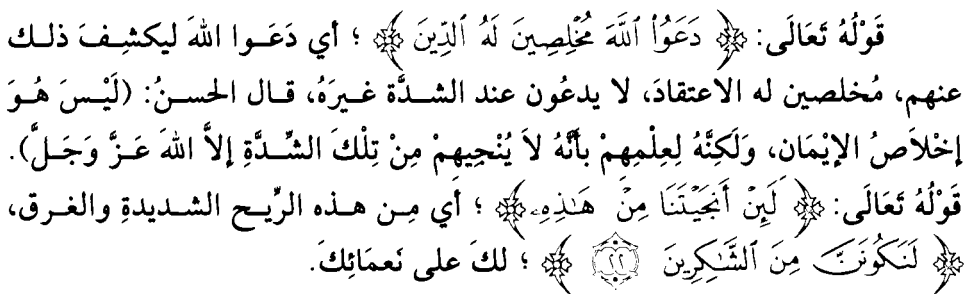 قَوْلُهُ تَعَالَى: ﴿ دَعَوُاْ ٱللَّهَ مُخۡلِصِينَ لَهُ ٱلدِّينَ ﴾ ؛ أي دَعَـوا اللهَ ليكشِـفَ ذلـك
عنهم، مُخلصين له الاعتقادَ، لا يدعُون عند الشـدَّة غـيرَهُ، قـال الحسـنُ: (لَيْـسَ هُـوَ
إخْلاَصُ الإيْمَان، وَلَكِنَّهُ لِعِلْمِهِمْ بأَنَّهُ لاَ يُنْجِيهِمْ مِنْ تِلْكَ الشِّـدَّةِ إلاَّ اللهَ عَـزَّ وَجَـلَّ).
قَوْلُهُ تَعَالَى: ﴿ لَئِنۡ أَنجَيۡتَنَا مِنۡ هَٰذِهِۦ ﴾ ؛ أي مِـن هـذه الرِّيـح الشـديدةِ والغـرق،
﴿ لَنَكُونَنَّ مِنَ ٱلشَّٰكِرِينَ ٢٢ ﴾ ؛ لكَ على نَعمَائِكَ.